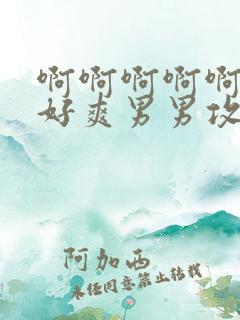 啊啊啊啊啊
好爽男男攻
阿加西
未经同意禁止转载